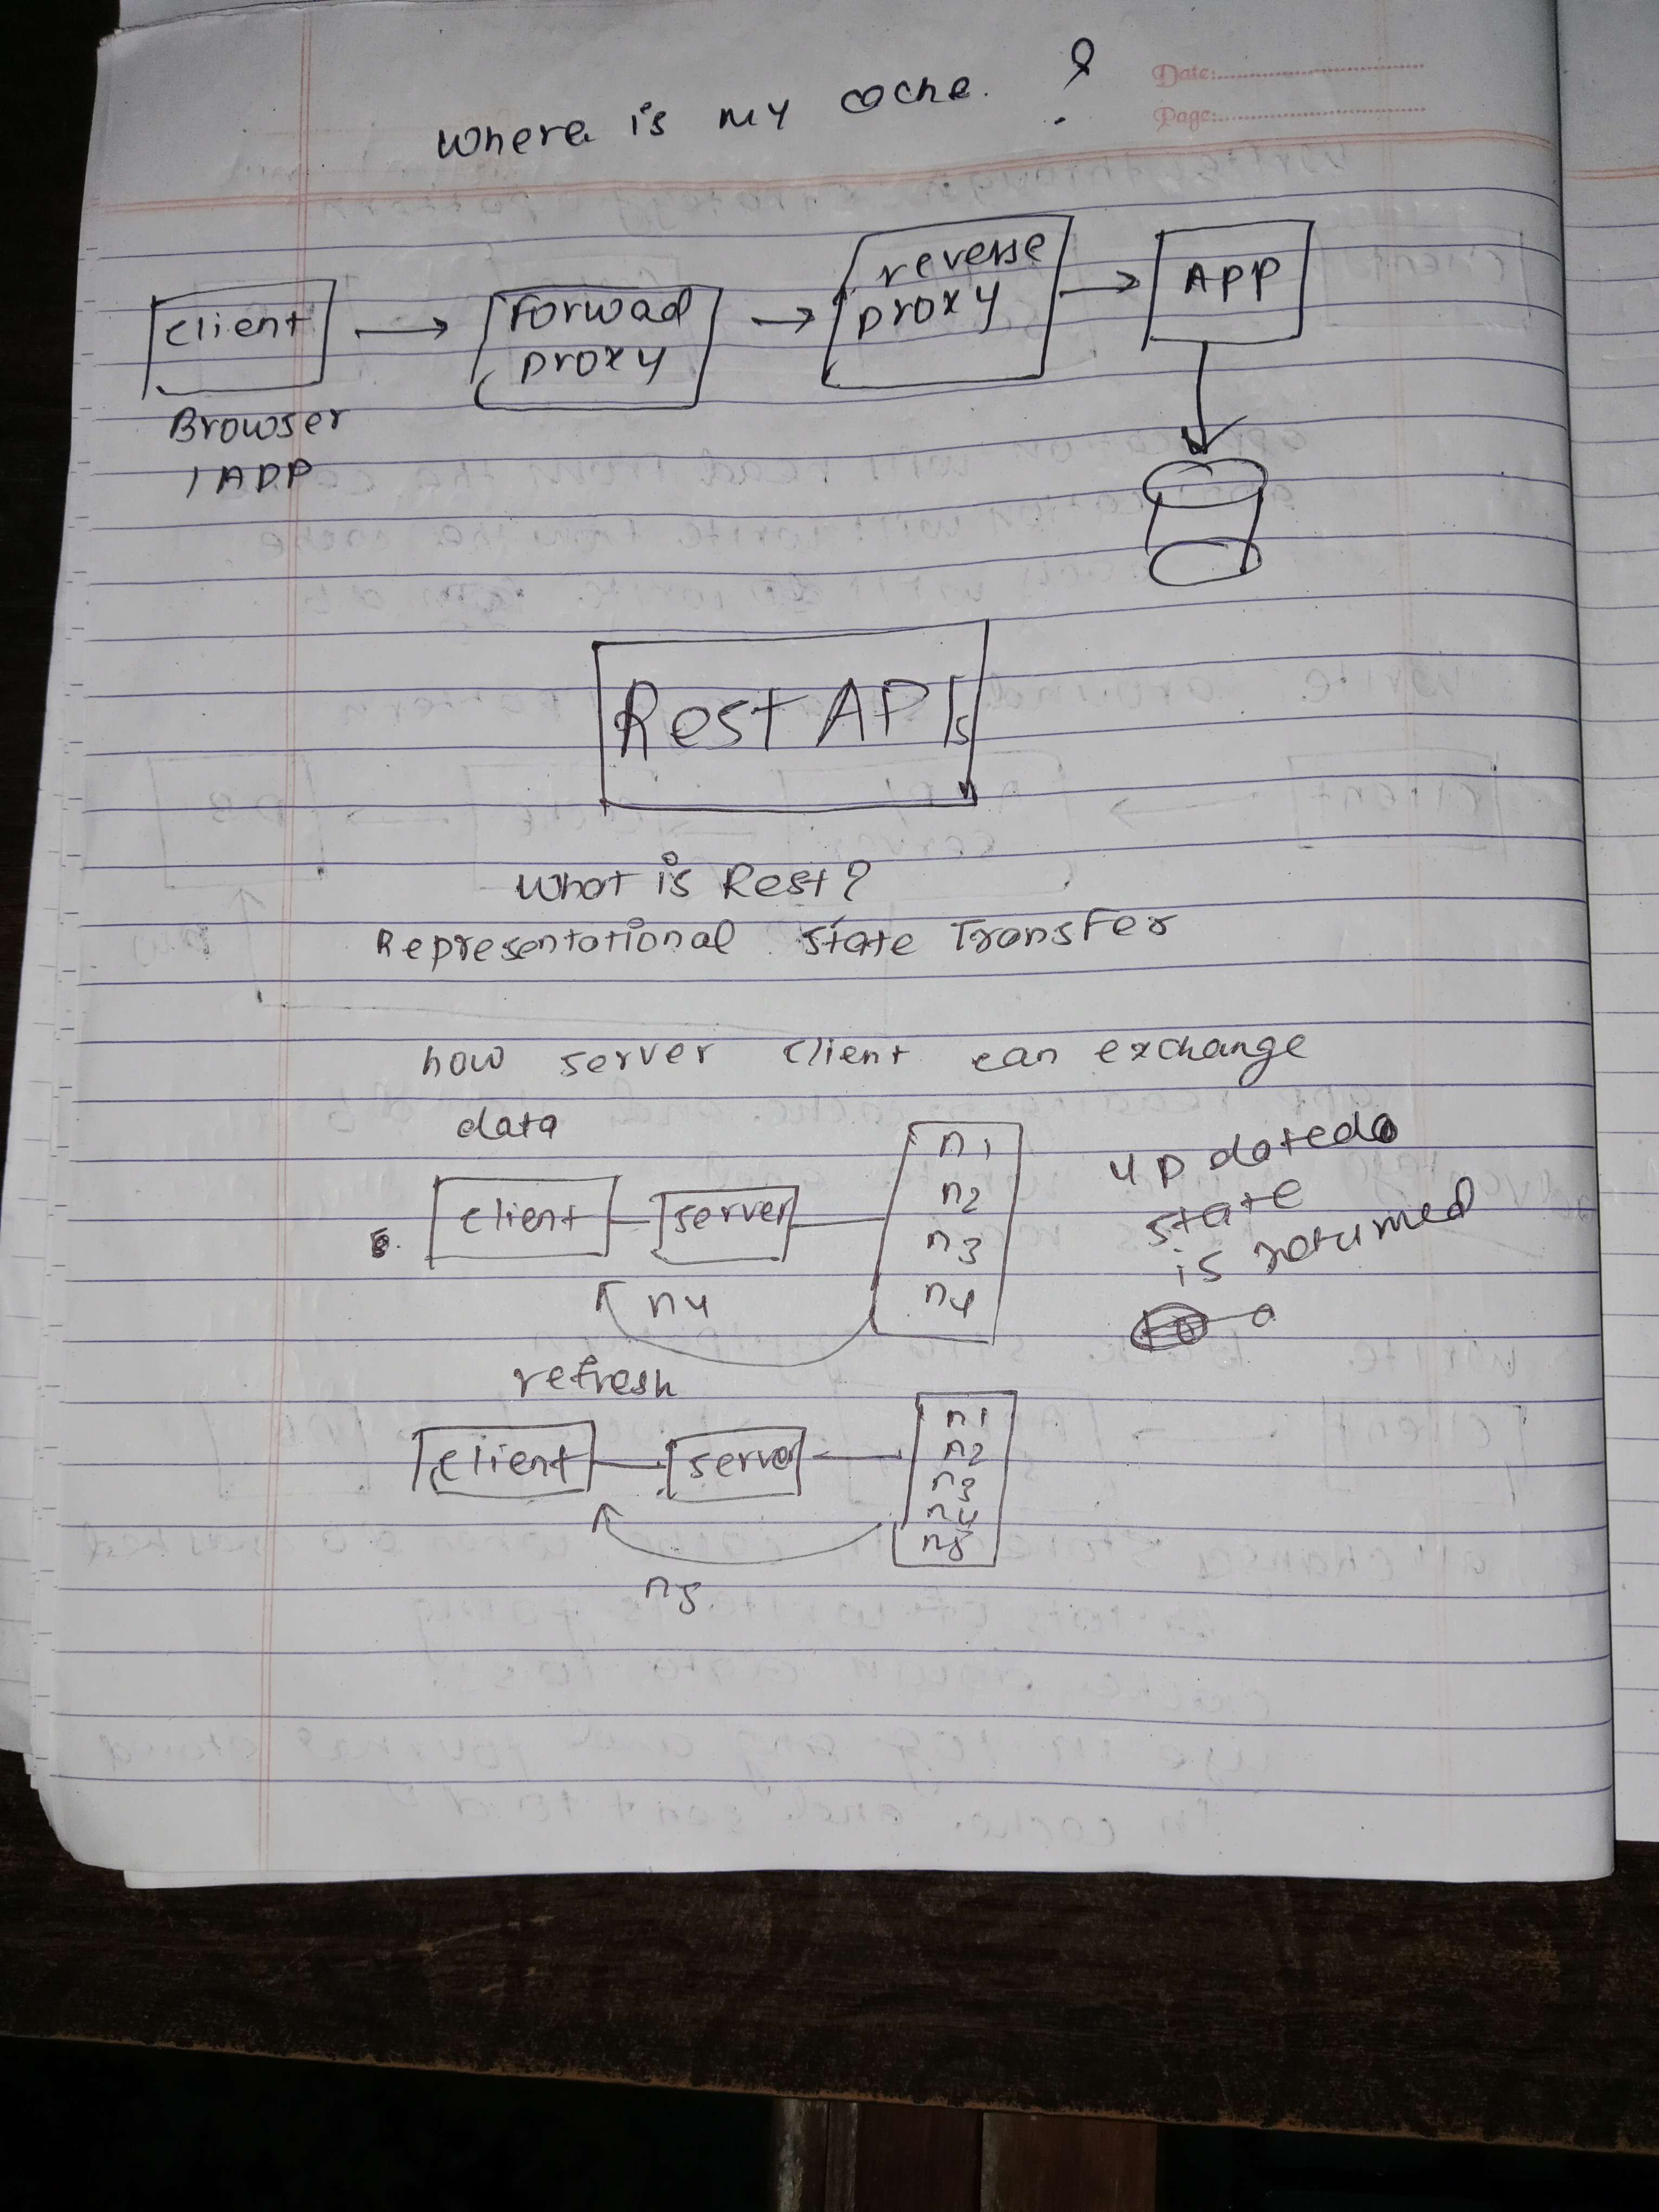 Where is my cache. ?
Date:
Page:
client
Forwad
proxy
reverse
proxy
APP
Browser
/ APP
Rest APIs
What is Rest?
Representational State Transfer
how server client can exchange
data
client
server
n1
n2
n3
n4
updated
state
is returned
n4
refresh
client
server
n1
n2
n3
n4
n5
n5